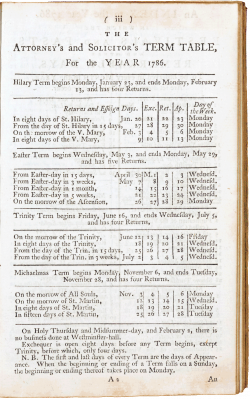 ( iii )
THE
ATTORNEY's and SOLICITOR's TERM TABLE,
For the YEAR 1786.
Hilary Term begins Monday, January 23, and ends Monday, February
13, and has four Returns.
Returns and Essoign Days. Exc. Ret. Ap. Day of the Week.
In eight days of St. Hilary, Jan. 20 21 22 23 Monday
From the day of St. Hilary in 15 days, 27 28 29 30 Monday
On the morrow of the V. Mary, Feb. 3 4 5 6 Monday
In eight days of the V. Mary, 9 10 11 13 Monday
Easter Term begins Wednesday, May 3, and ends Monday, May 29,
and has five Returns.
From Easter-day in 15 days, April 30 M.1 2 3 Wednesd.
From Easter-day in 3 weeks, May 7 8 9 10 Wednesd.
From Easter-day in 1 month, 14 15 16 17 Wednesd.
From Easter-day in 5 weeks, 21 22 23 24 Wednesd.
On the morrow of the Ascension, 26 27 28 29 Monday
Trinity Term begins Friday, June 16, and ends Wednesday, July 5,
and has four Returns.
On the morrow of the Trinity, June 12 13 14 16 Friday
In eight days of the Trinity, 18 19 20 21 Wednesd.
From the day of the Trin. in 15 days, 25 26 27 28 Wednesd.
From the day of the Trin. in 3 weeks, July 2 3 4 5 Wednesd.
Michaelmas Term begins Monday, November 6, and ends Tuesday,
November 28, and has four Returns.
On the morrow of All Souls, Nov. 3 4 5 6 Monday
On the morrow of St. Martin, 12 13 14 15 Wednesd.
In eight days of St. Martin, 18 19 20 21 Tuesday
In fifteen days of St. Martin, 25 26 27 28 Tuesday
On Holy Thursday and Midsummer-day, and February 2, there is
no business done at Westminster-hall.
Exchequer is open eight days before any Term begins, except
Trinity, before which, only four days.
N. B. The first and last days of every Term are the days of Appear-
ance. When the beginning or ending of a Term falls on a Sunday,
the beginning or ending thereof takes place on Monday.
A 2 An